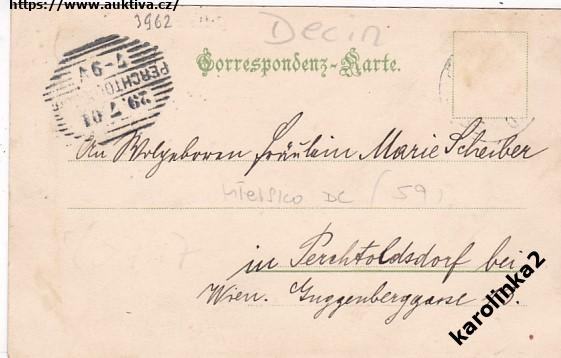 https://www.auktiva.cz/
3962
Decin
Correspondenz-Karte.
PERCHTOL
29.7.01
7-9V
An Wolgeboren Fräulein Marie Scheiber
DC (59)
in Perchtoldsdorf bei
Wien. Guggenberggasse
karolinka2